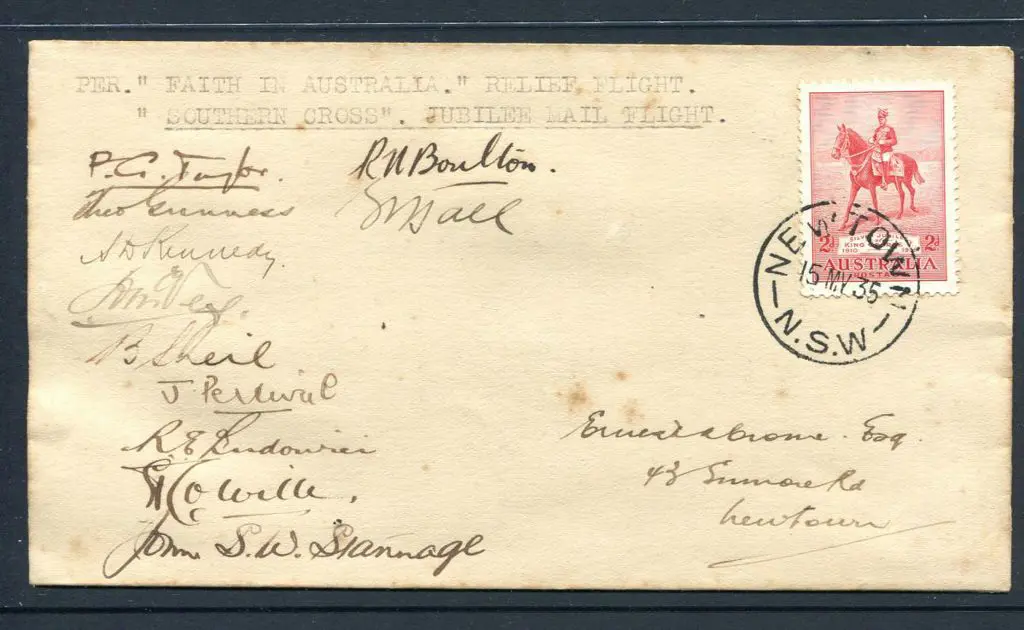 PER. " FAITH IN AUSTRALIA." RELIEF FLIGHT.
" SOUTHERN CROSS". JUBILEE MAIL FLIGHT.
P.G. Taylor.
R N Boulton.
Theo Gunness
S D Kennedy.
B Sheil
J Percival
R. E. Ludowici
John S.W. Stannage
SILVER JUBILEE
KING
1910
2d 2d
AUSTRALIA
POSTAGE
NEWTOWN
15 MY 35
N.S.W
Ernest A Crome. Esq.
43 Enmore Rd
Newtown